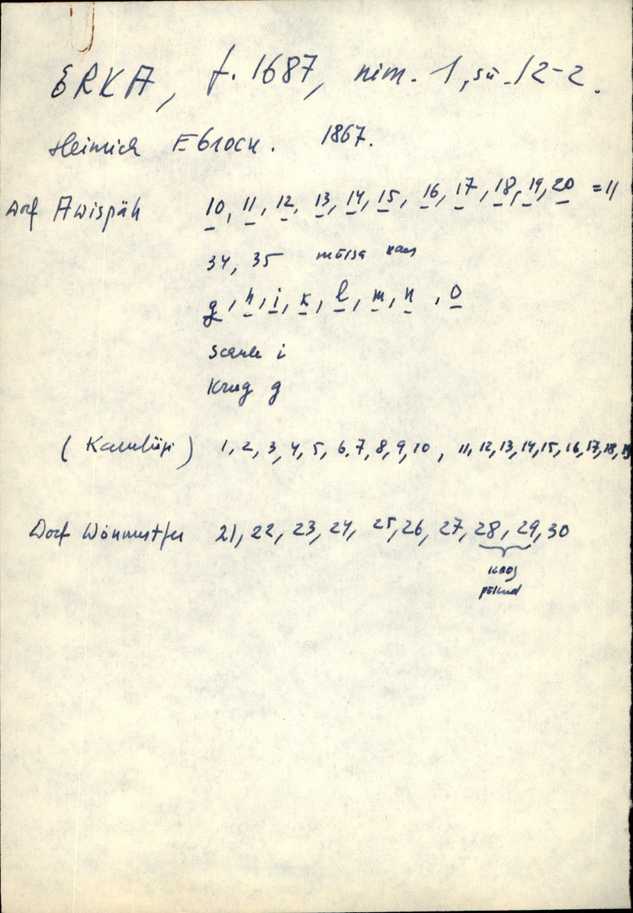 ERKA, f. 1687, nim. 1, sü. 12-2.
Heinrich Ebrock. 1867.
Dorf Awispäh 10, 11, 12, 13, 14, 15, 16, 17, 18, 19, 20 = 11
34, 35 mõisa
g, h, i, k, l, m, n, o
i
Krug g
1, 2, 3, 4, 5, 6, 7, 8, 9, 10, 11, 12, 13, 14, 15, 16, 17, 18, 19
Dorf 21, 22, 23, 24, 25, 26, 27, 28, 29, 30